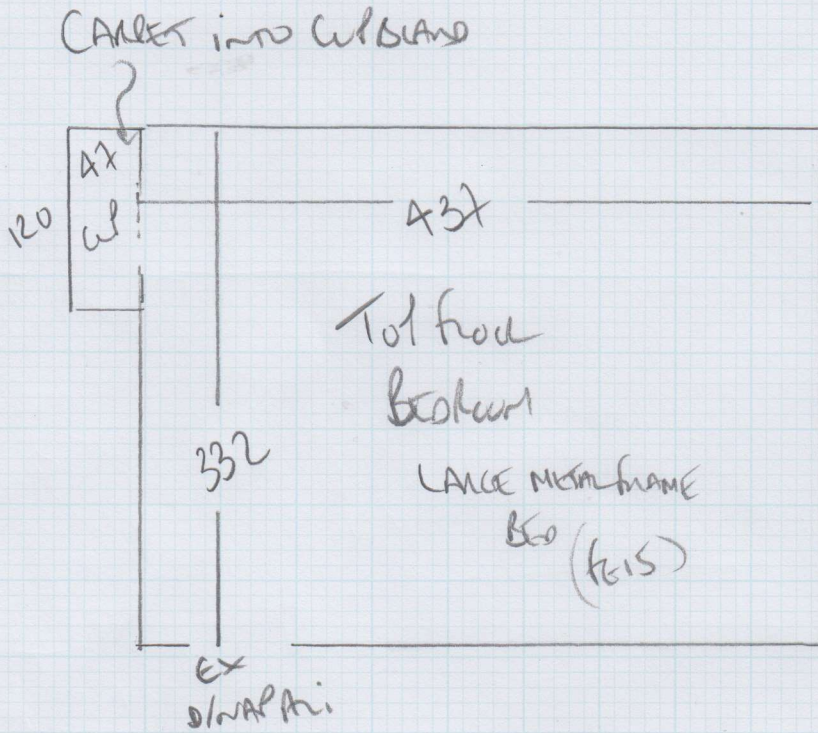 CARPET INTO CUPBOARD
47
120
CUP
437
TOP FLOOR
BEDROOM
332
LARGE METAL FRAME
BED
EX